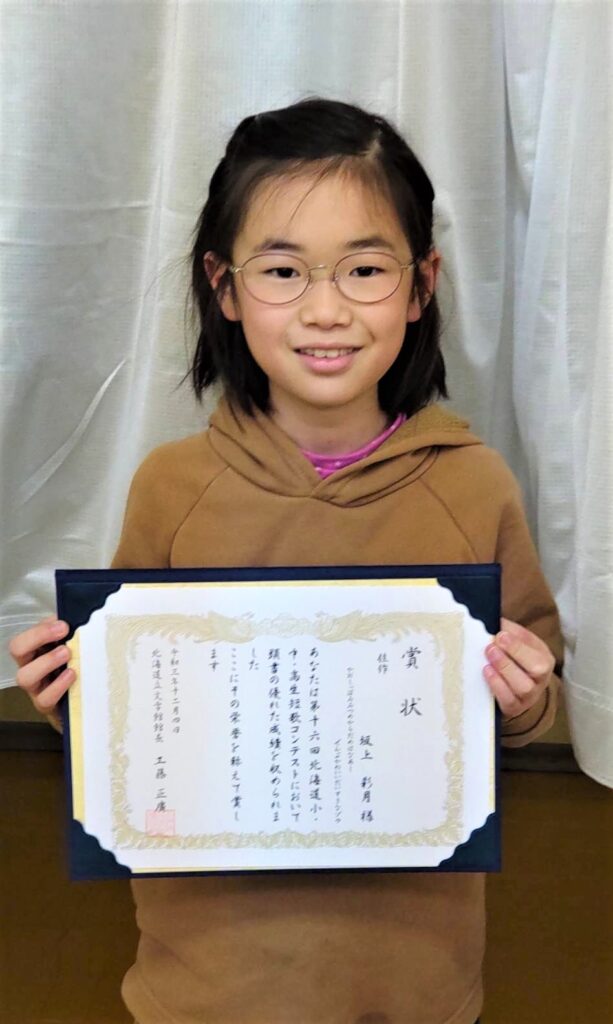 賞状
佳作
坂上 彩月 様
あなたは第十六回北海道小・
中・高生短歌コンテストにおいて
頭書の優れた成績を収められま
した
ここにその栄誉を称えて賞し
ます
令和三年十二月四日
北海道立文学館館長 工藤 正廣